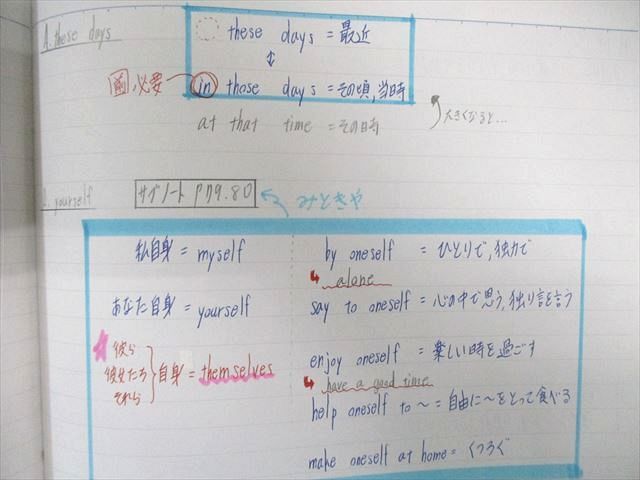 A. these days
these days = 最近
↕
前 必要 in those days = その頃, 当時
at that time = その時
大きくなると...
yourself
サブノート P79.80
みときや
私自身 = myself
あなた自身 = yourself
彼ら
彼女たち 自身 = themselves
それら
by oneself = ひとりで, 独力で
alone
say to oneself = 心の中で思う, 独り言を言う
enjoy oneself = 楽しい時を過ごす
have a good time
help oneself to ~ = 自由に~をとって食べる
make oneself at home = くつろぐ